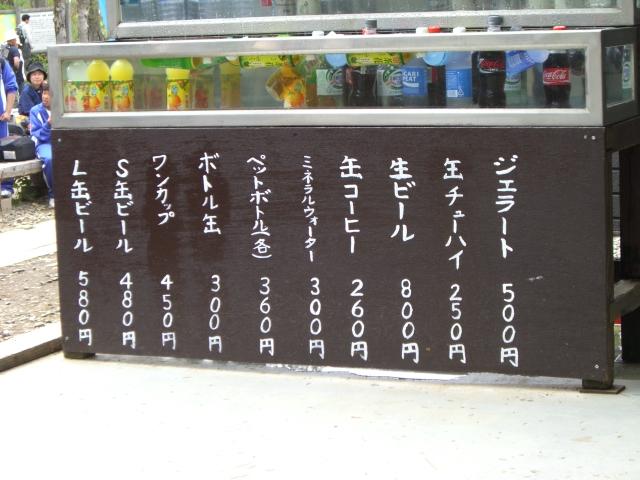 ジェラート 500円
缶チューハイ 250円
生ビール 800円
缶コーヒー 260円
ミネラルウォーター 300円
ペットボトル(各) 360円
ボトル缶 300円
ワンカップ 450円
S缶ビール 480円
L缶ビール 580円
Coca-Cola